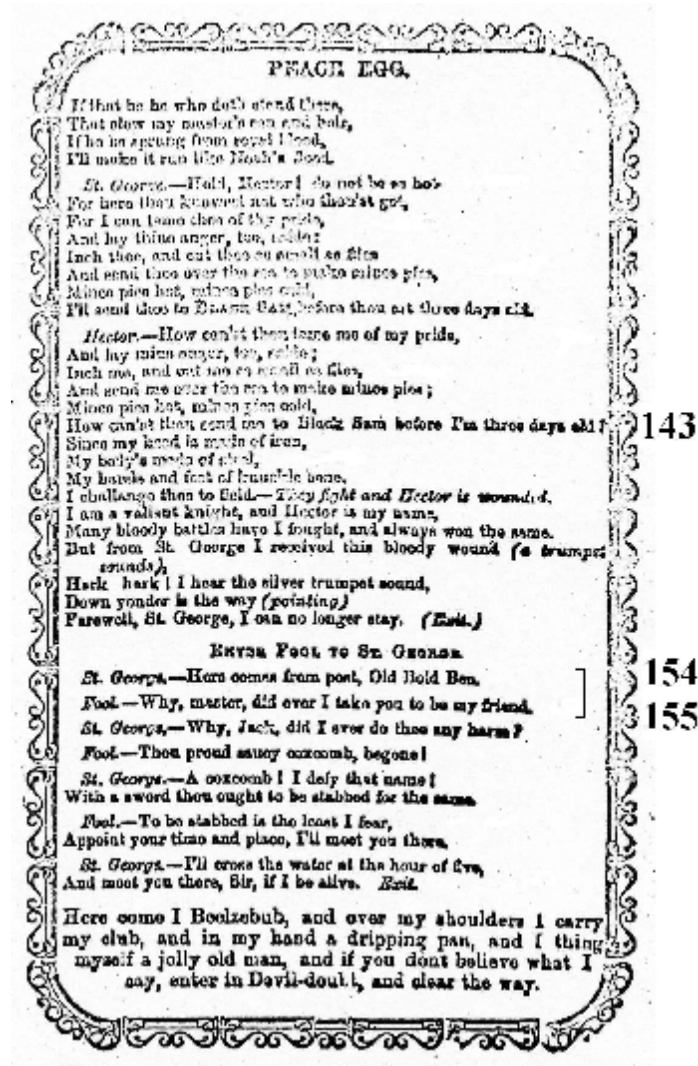 PEACE EGG.
If that be he who doth stand there,
That slew my master's son and heir,
If he be sprung from royal blood,
I'll make it run like Noah's flood.
St. George.—Hold, Hector! do not be so hot
For here thou knowest not who thou'st got,
For I can tame thee of thy pride,
And lay thine anger, too, aside;
Inch thee, and cut thee as small as flies
And send thee over the sea to make mince pies,
Mince pies hot, mince pies cold,
I'll send thee to BLACK SAM before thou art three days old.
Hector.—How can'st thou tame me of my pride,
And lay mine anger, too, aside;
Inch me, and cut me as small as flies,
And send me over the sea to make mince pies;
Mince pies hot, mince pies cold,
How can'st thou send me to Black Sam before I'm three days old? 143
Since my head is made of iron,
My body's made of steel,
My hands and feet of knuckle bone,
I challenge thee to field.—They fight and Hector is wounded.
I am a valiant knight, and Hector is my name,
Many bloody battles have I fought, and always won the same.
But from St. George I received this bloody wound (a trumpet
sounds),
Hark hark! I hear the silver trumpet sound,
Down yonder is the way (pointing)
Farewell, St. George, I can no longer stay. (Exit.)
ENTER FOOL TO ST. GEORGE
St. George.—Here comes from post, Old Bold Ben. 154
Fool.—Why, master, did ever I take you to be my friend. 155
St. George.—Why, Jack, did I ever do thee any harm?
Fool.—Thou proud saucy coxcomb, begone!
St. George.—A coxcomb! I defy that name!
With a sword thou ought to be stabbed for the same.
Fool.—To be stabbed is the least I fear,
Appoint your time and place, I'll meet you there,
St. George.—I'll cross the water at the hour of five,
And meet you there, Sir, if I be alive. Exit.
Here come I Beelzebub, and over my shoulders I carry
my club, and in my hand a dripping pan, and I thing
myself a jolly old man, and if you dont believe what I
say, enter in Devil-doubt, and clear the way.